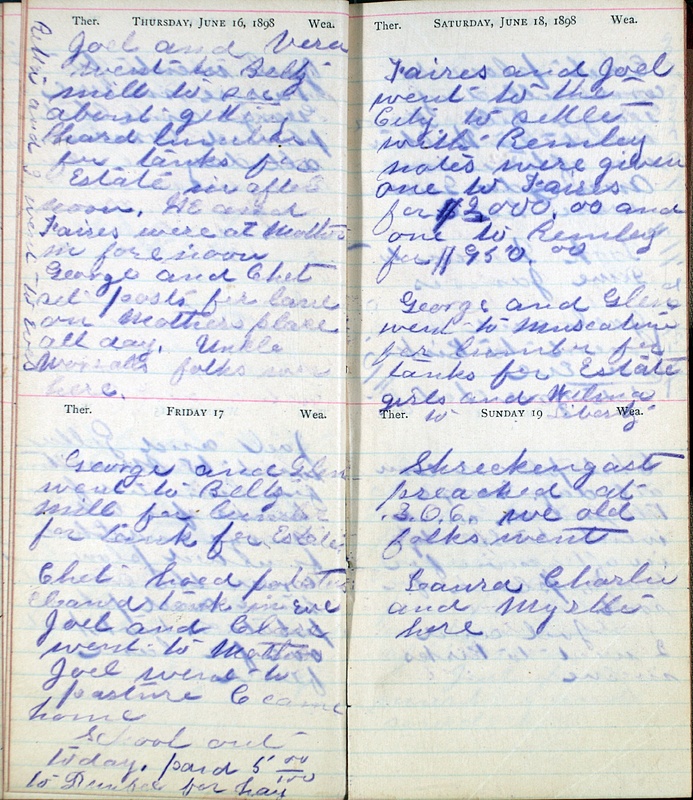 Ther. THURSDAY, JUNE 16, 1898 Wea.
Joel and Vera
went to Beltz
mill to see
about getting
hard lumber
for tanks for
Estate in after
noon. He and
Faires were at Mothers
in fore noon
George and Chet
set posts for lane
on Mothers place
all day. Uncle
folks were
here.
and I went to
Ther. FRIDAY 17 Wea.
George and Glen
went to Beltz
mill for lumber
for tank for Estate
Chet hoed potatoes
in eve
Joel and
went to Mothers
Joel went to
pasture C came
home
School out
today. paid 5 00/100
to for hay
Ther. SATURDAY, JUNE 18, 1898 Wea.
Faires and Joel
went to the
City to settle
with Remley
notes were given
one to Faires
for $2000.00 and
one to Remley
for $950 00
George and Glen
went to Muscatine
for lumber for
tanks for Estate
girls and Wilma
to Liberty
Ther. SUNDAY 19 Wea.
Shreckengast
preached at
we old
folks went
Laura Charlie
and Myrtle
here